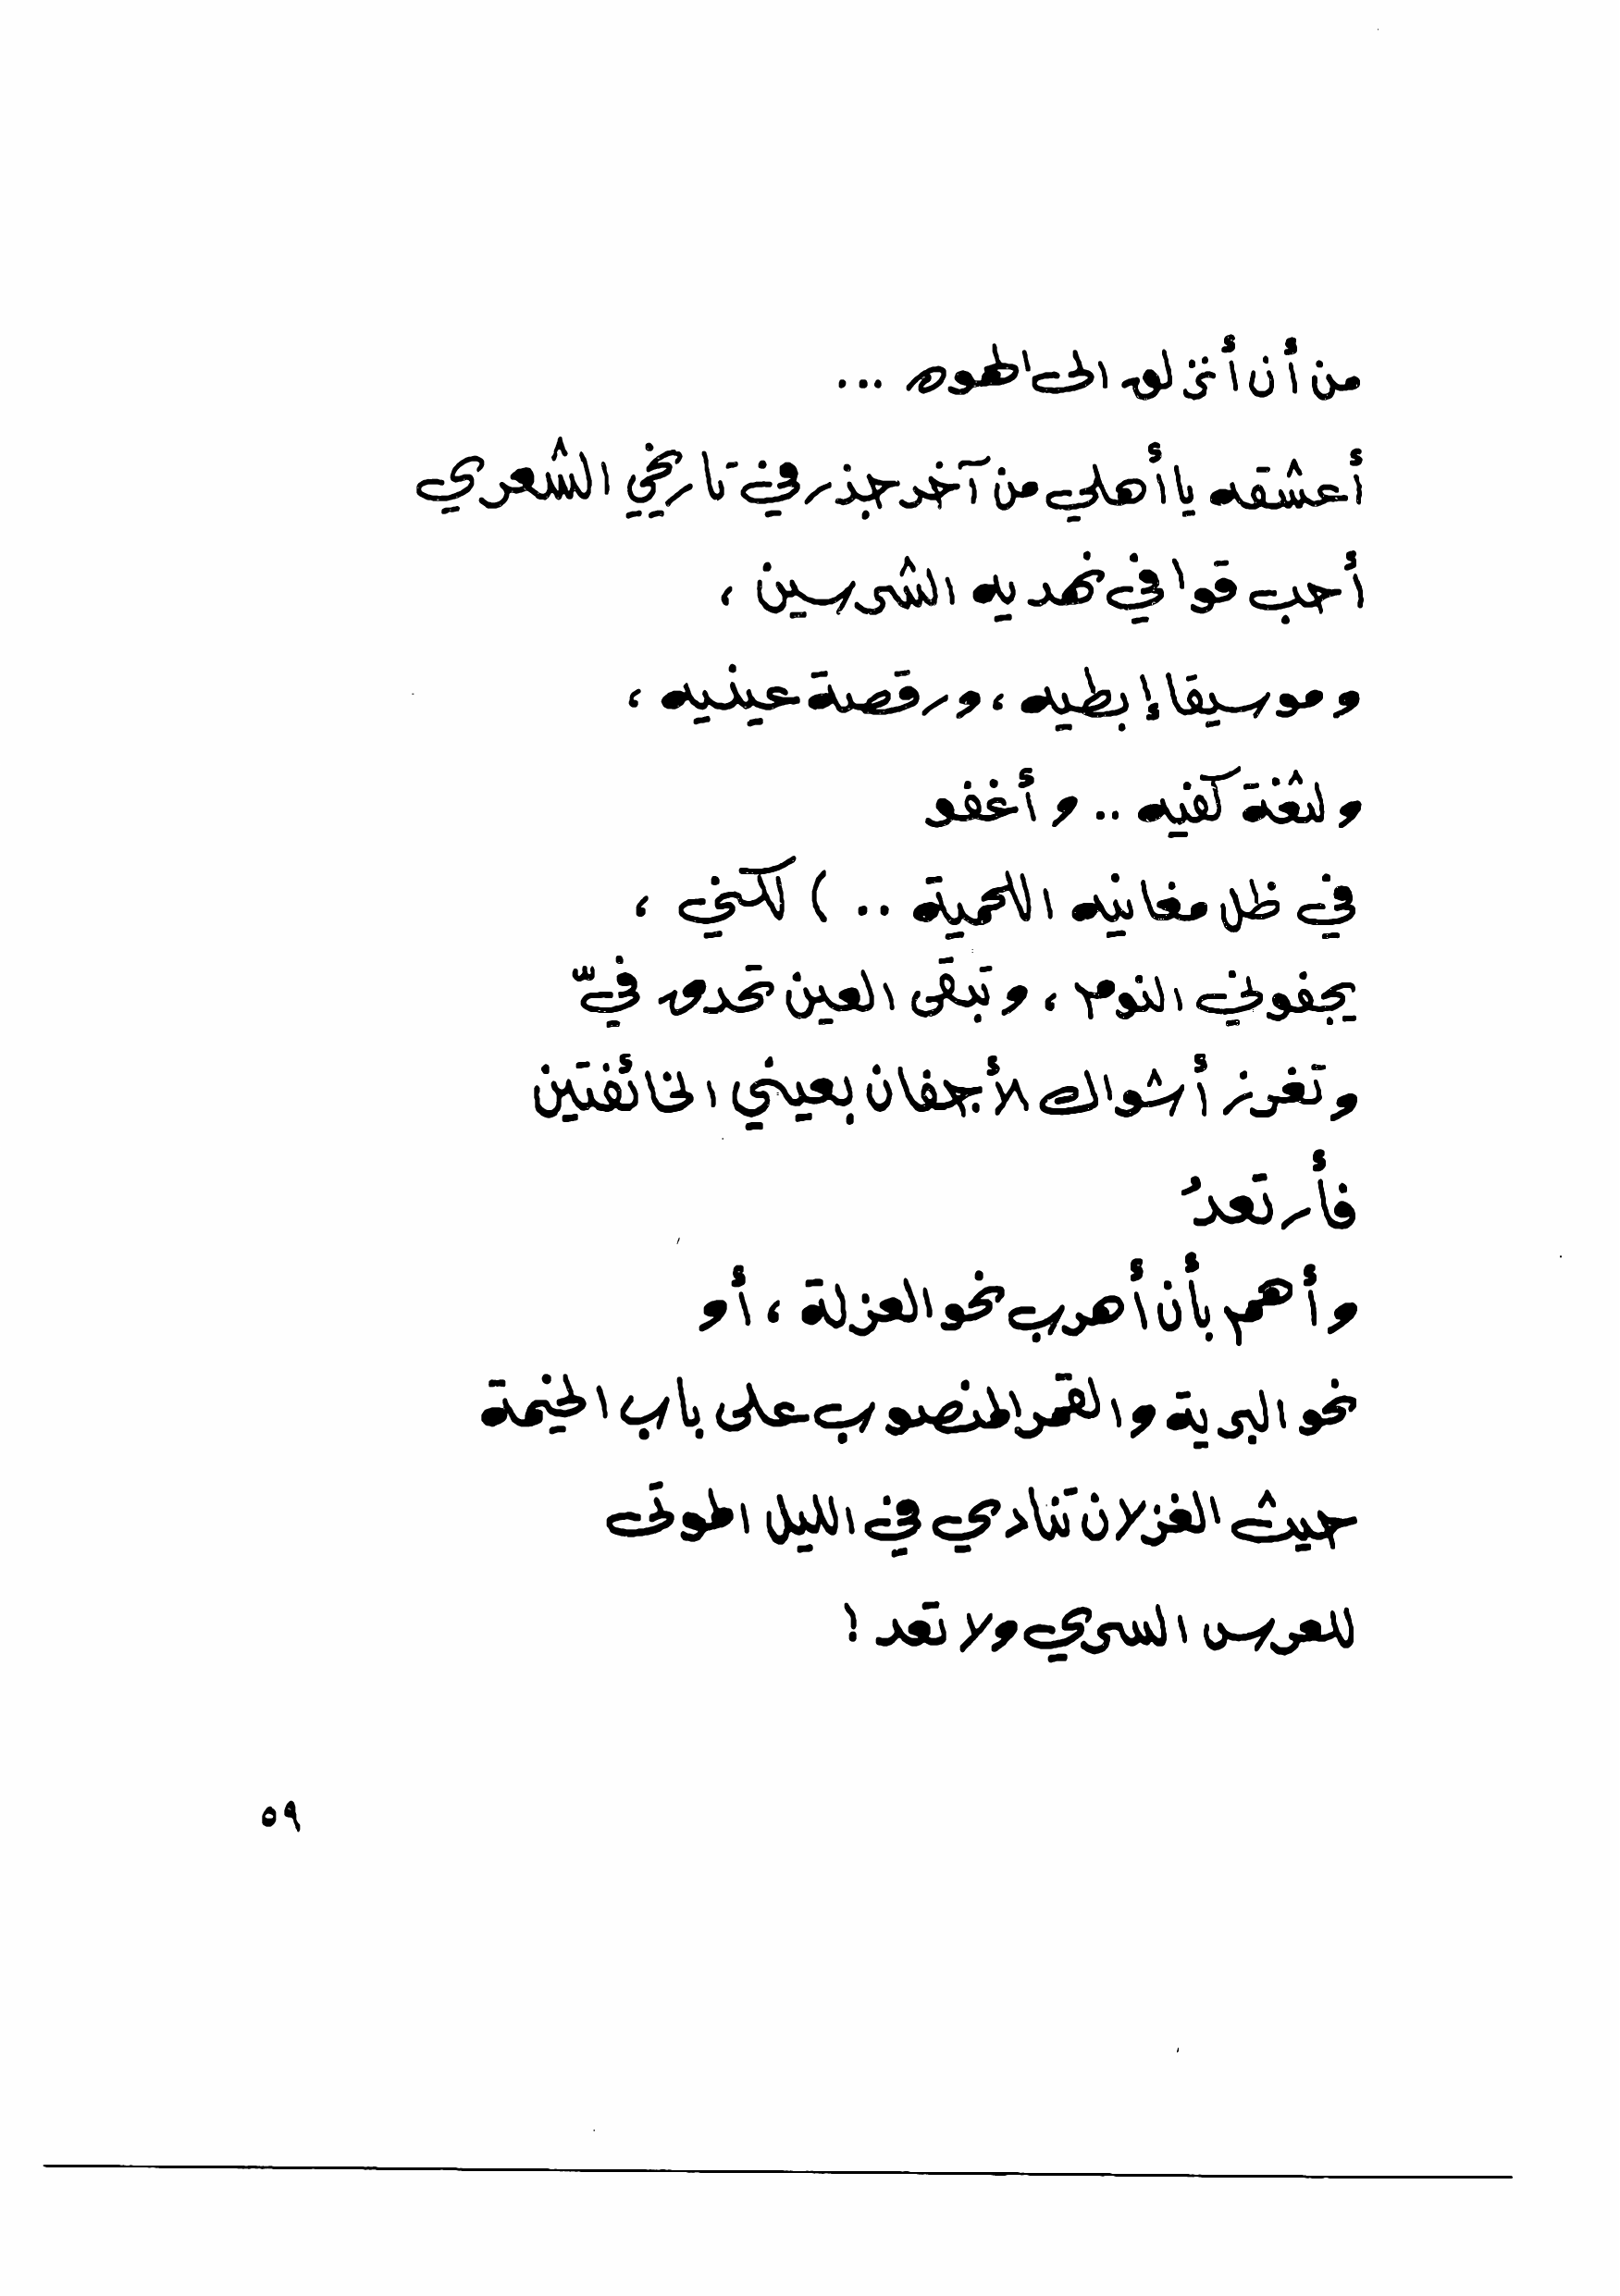 من أن أنزلق الى الهوه ...
أعشقه يا أهلي من آخر جذر في تاريخي الشعري
أحب قوافي نهديه الشرسين ،
وموسيقا إبطيه ، ورقصة عينيه ،
ولثغة كفيه .. وأغفو
في ظل مغانيه اللحمية .. ) لكني ،
يجفوني النوم ، وتبقى العين تحدق فيّ
وتغرز أشواك الأجفان بعيني الخائفتين
فأرتعدُ
وأهم بأن أهرب نحو العزلة ، أو
نحو البرية والقمر المنصوب على باب الخيمة
حيث الغزلان تنادي في الليل الموتى
للعرس السري ولا تعد !
٥٩